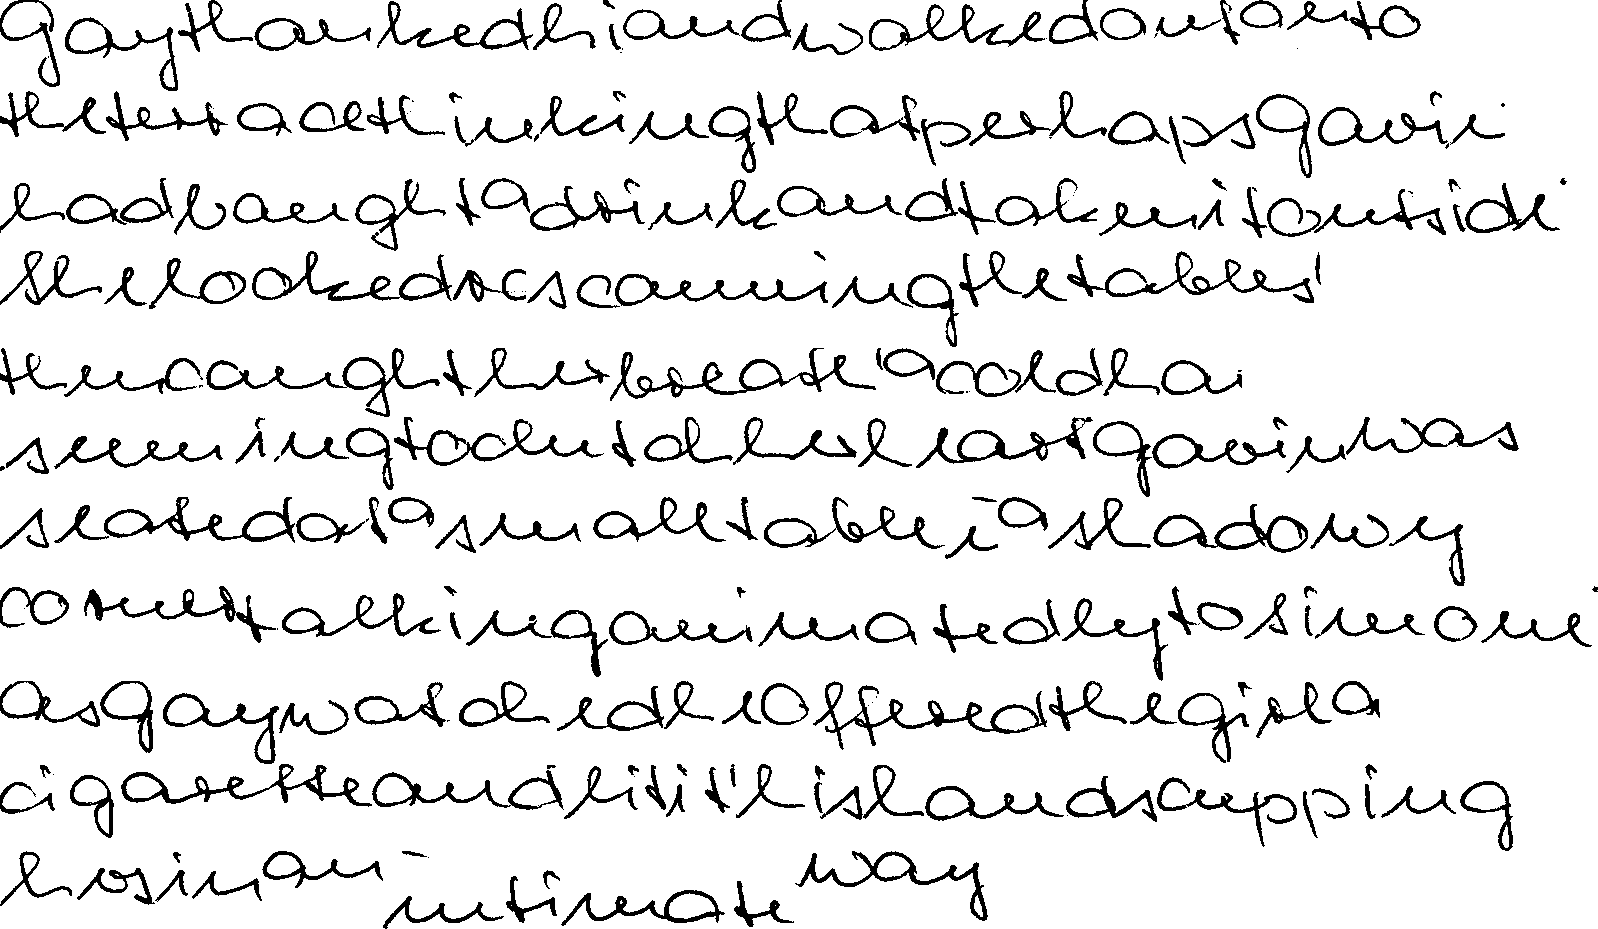 Gay thanked him and walked out on to
the terrace thinking that perhaps Gavin
had bought a drink and taken it outside.
She looked scanning the tables,
then caught her breath, a cold
seeming to clutch her heart. Gavin was
seated at a small table in a shadowy
corner talking animatedly to Simone.
As Gay watched he offered the girl a
cigarette and lit it, his hands cupping
hers in an intimate way